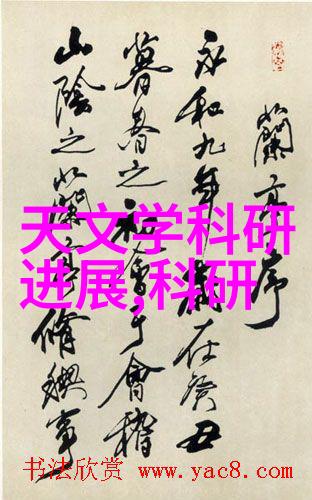 蘭亭序
永和九年歲在癸丑
暮春之初會于會稽
山陰之蘭亭脩禊事
天文学科研
进展,科研
书法欣赏 www.yac8.com